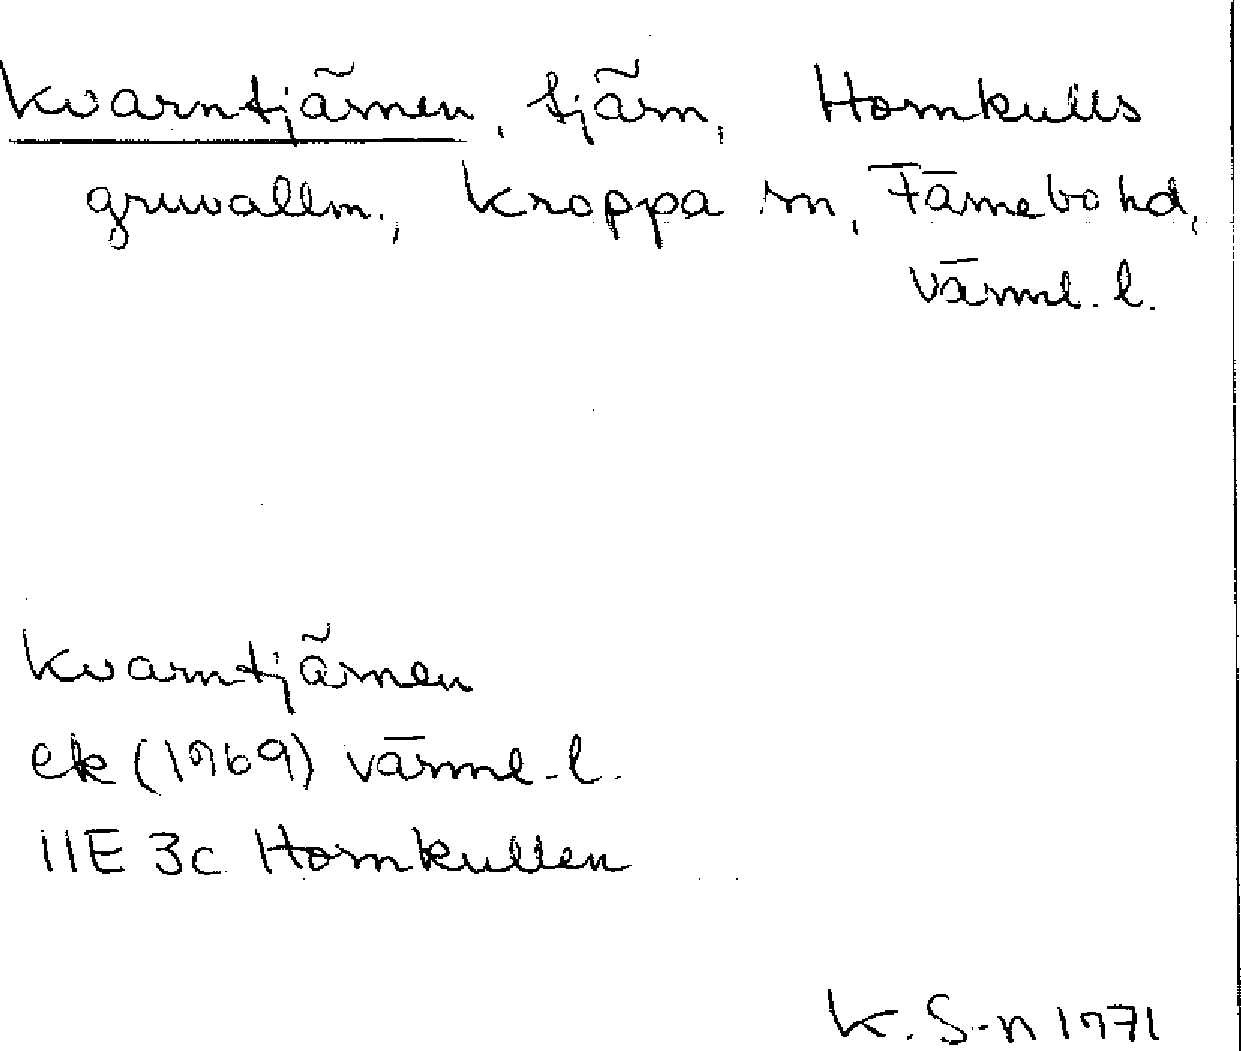 Kvarntjärnen, tjärn, Hornkulls
gruvallm., Kroppa sn, Färnebo hd,
Värml. l.
Kvarntjärnen
ek (1969) Värml. l.
11E 3c Hornkullen
K. S-n 1971